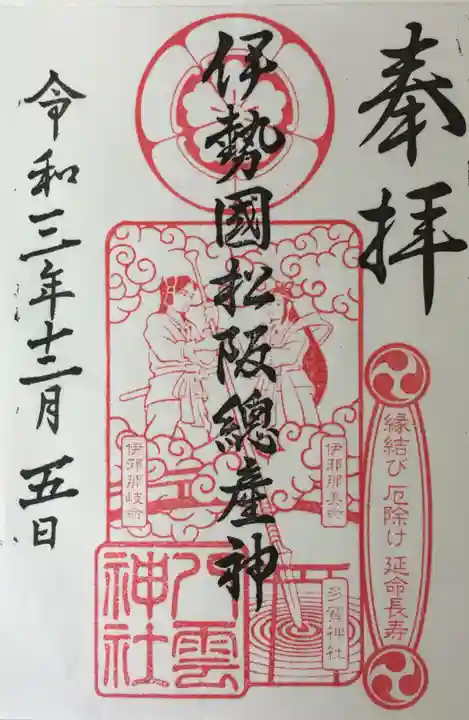 奉拝
縁結び 厄除け 延命長寿
伊勢國松阪總産神
伊邪那美命
伊邪那岐命
多賀神社
八雲
神社
令和三年十二月五日